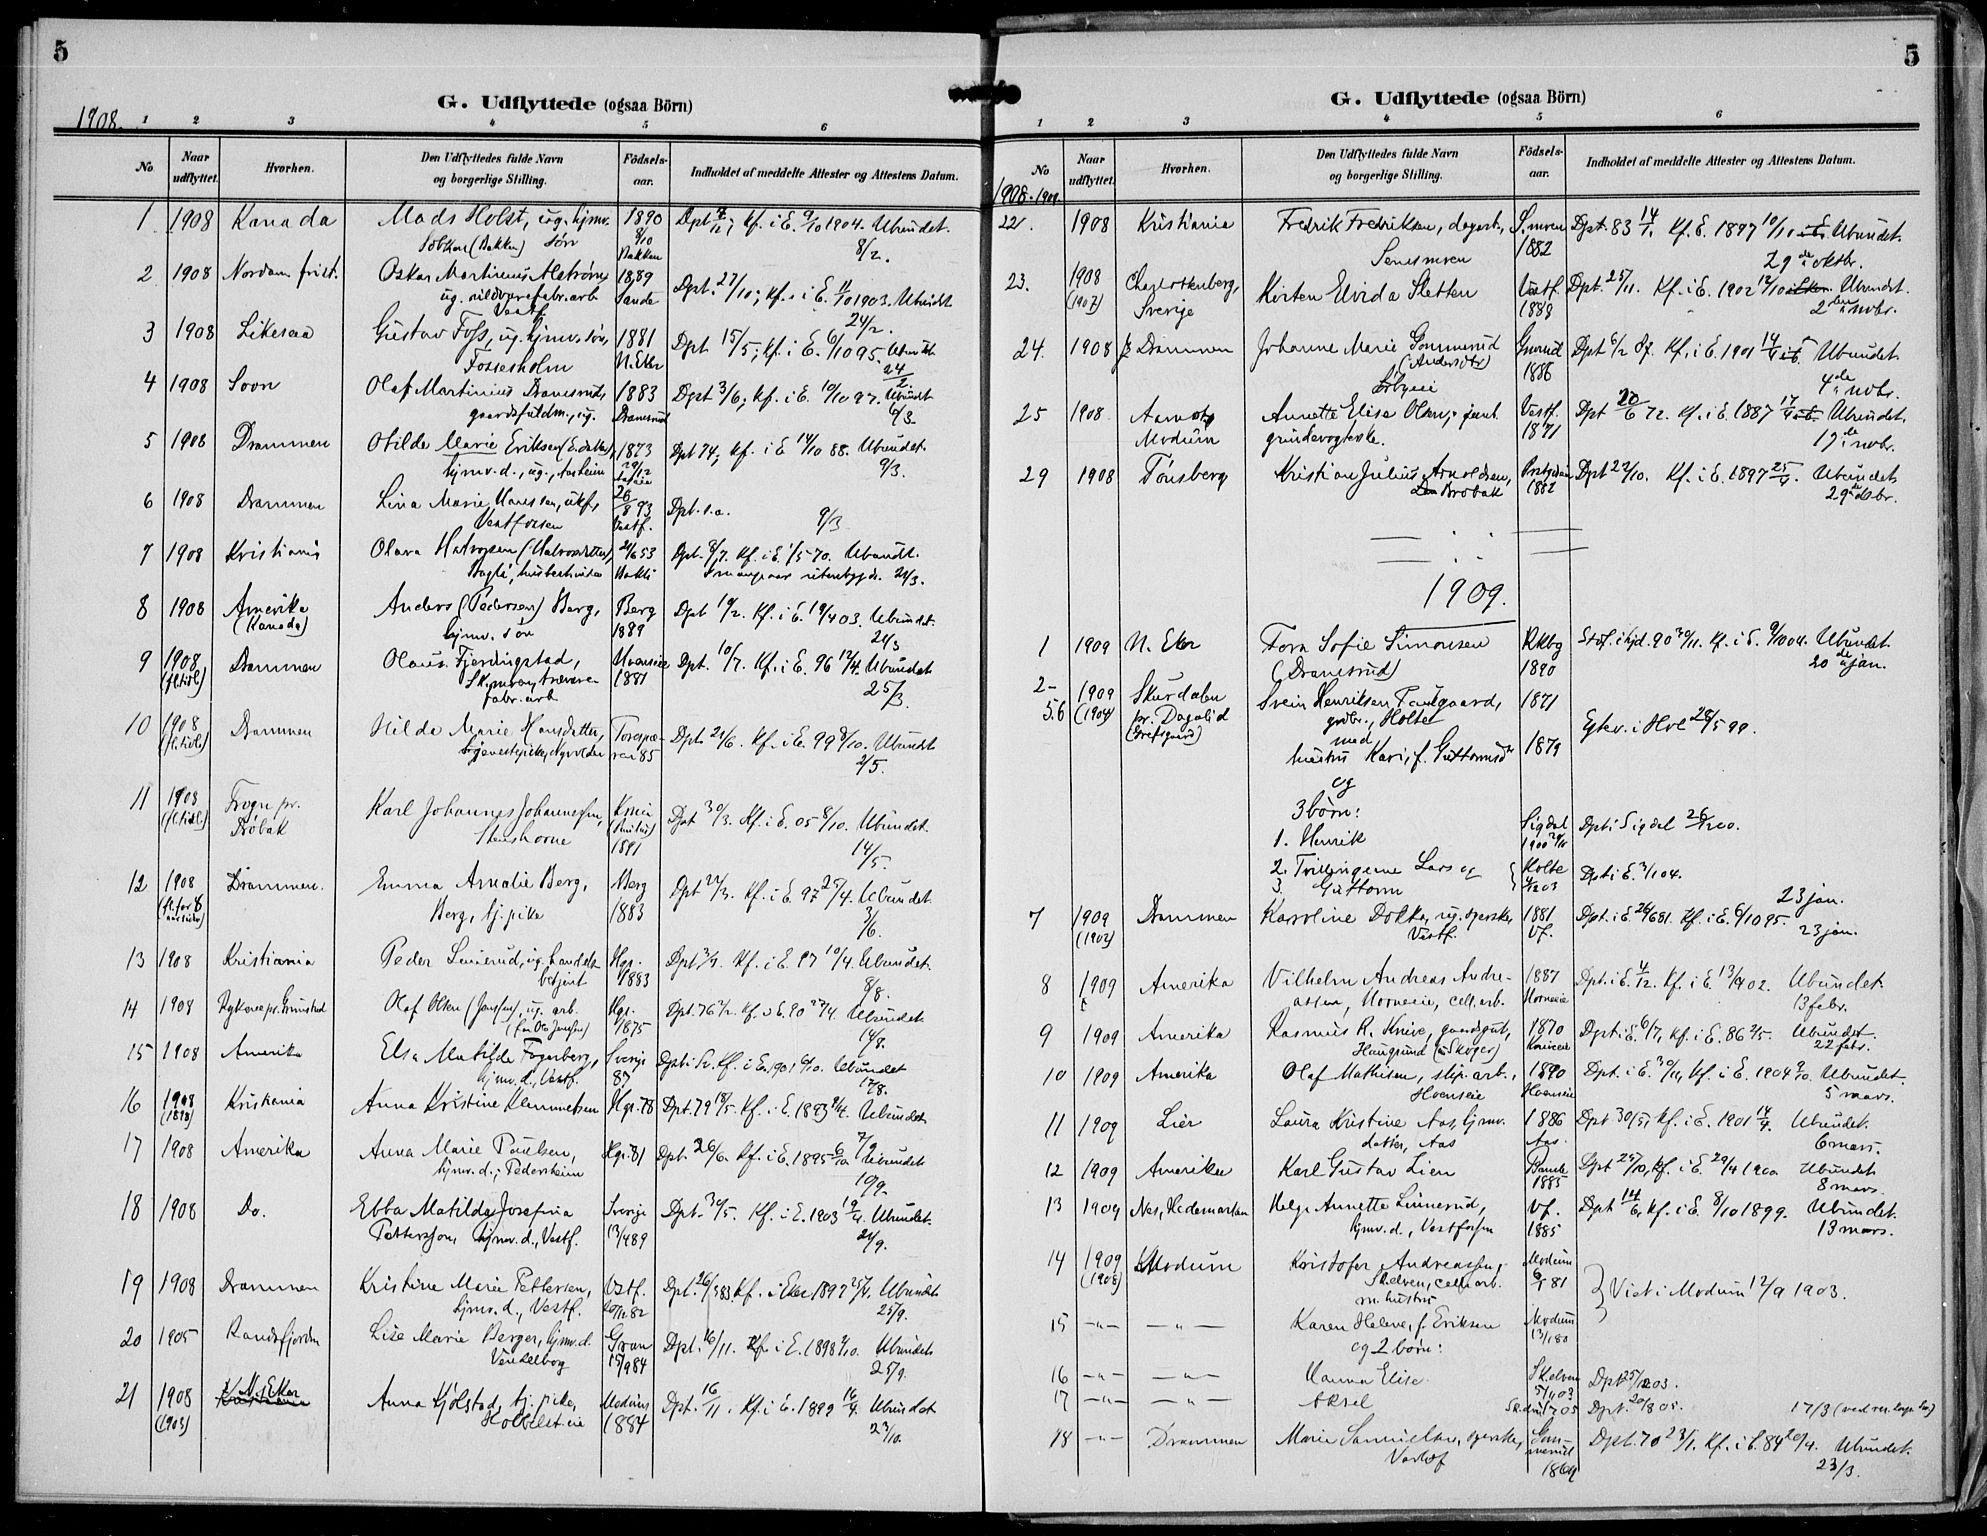 5
G. Udflyttede (ogsaa Börn)
1908.
1 2 3 4 5 6
No Naar udflyttet. Hvorhen. Den Udflyttedes fulde Navn og borgerlige Stilling. Födsels-aar. Indholdet af meddelte Attester og Attestens Datum.
1 1908 Kanada Mads Holst, ug. hjmv. 1890 Kf. i E. 9/10 1904. Ubundet.
(Bakken) søn 8/10 Bakken 8/2.
2 1908 Oskar Martinius 1889 Dpt. 27/10; Kf. i E. 11/10 1903. Ubundet
ug. Vestf. Sande 24/2.
3 1908 Gustav Foss, ug. hjmv. søn, 1881 Dpt. 15/5; Kf. i E. 6/10 95. Ubundet
Fossesholm N. Eker 24/2
4 1908 Olaf Martinius 1883 Dpt 3/6; Kf. i E. 10/10 97. Ubundet
ug. 6/3.
5 1908 Drammen Otilde Marie Eriksen 1873 Dpt 74; Kf. i E 14/10 88. Ubundet.
hjmv. d., ug., Aasheim 29/12 9/3.
6 1908 Drammen Lina Marie Hansen, ukf., 26/8 93 Dpt. s.a.
Vestfossen Vestf. 9/3
7 1908 Kristiania Olava Halvorsen (Halvorsdatter), 53 Dpt. Kf. i E. 1/5 70. Ubundt.
Bakli 21/3.
8 1908 Amerika Anders (Pedersen) Berg, Berg Dpt 19/2. Kf. i E. 19/4 03. Ubundet.
(Kanada) hjmv. søn 1889 21/3
9 1908 Drammen Olaus Fjerdingstad, Hoenseie Dpt. 10/7. Kf. i E. 96 12/4. Ubundet
(fl. tidl.) fabr. arb 1881 25/3.
10 1908 Drammen Hilda Marie Hansdatter, Dpt. 21/6. Kf. i E. 99 8/10. Ubundt
(fl. tidl.) tjenestepike, 85 2/5.
11 1908 Frogn pr. Karl Johannes Johannessen, Dpt 30/3. Kf. i E. 05 8/10. Ubundet.
(fl. tidl.) Drøbak Stenshorne 1891 14/5.
12 1908 Drammen. Emma Amalie Berg, Berg Dpt 22/3. Kf. i E. 97 25/4. Ubundet
Berg, tj. pike 1883 3/6.
13 1908 Kristiania Peder Linnerud, ug. handels- Hgs. Dpt 3/9. Kf. i E. 97 10/4. Ubundet.
betjent 1883 8/8.
14 1908 pr. Grimstad Olaf Olsen (Jensen), ug. arb. Hgs. Dpt. 76 Kf. i E. 90 27/4. Ubundet
1875 14/8.
15 1908 Amerika Elsa Matilda Fagerberg, Sverige Dpt. i Sv. Kf. i E. 1901 6/10. Ubundet
hjmv. d., Vestf. 87 17/8.
16 1908 Kristiania Anna Kristine Klemmetsen Hgs. 78 Dpt. 79 18/5. Kf. i E. 1893 9/4. Ubundet
17 1908 Amerika Anna Marie Paulsen, Hgs. 81 Dpt. 26/6. Kf. i E. 1895 6/10. Ubundet 7/9
hjmv. d.; Pedersheim 19/9.
18 1908 Do. Ebba Matilda Josefina Sverige Dpt. 30/5. Kf. i E. 1903 19/4. Ubundet.
Pettersson, hjmv. d., Vestf. 13/4 89 21/9.
19 1908 Drammen Kristine Marie Pettersen, Vestf. Dpt. 26/3 83. Kf. i Eker 1897 25/4. Ubundet
hjmv. d., Vestf. 82 25/9.
20 1905 Randsfjorden Lise Marie Berger, hjmv. d. Gran Dpt. 16/11. Kf. i E. 1898 9/10. Ubundet
Vendelborg 15/9 84 25/9.
21 1908 N. Eker Anna Kjølstad, tj. pike, Modum Dpt. 16/11. Kf. i E. 1899 16/4. Ubundet
(1903) 1884 23/10.
5
G. Udflyttede (ogsaa Börn)
1 2 3 4 5 6
No Naar udflyttet. Hvorhen. Den Udflyttedes fulde Navn og borgerlige Stilling. Födsels-aar. Indholdet af meddelte Attester og Attestens Datum.
1908-1909
22. 1908 Kristiania Fredrik Fredriksen, Dpt. 83 14/1. Kf. E. 1897 10/10 Ubundet.
1882 29de oktbr.
23. 1908 Charlottenberg, Kirsten Elvida Sletten Vestf. Dpt. 25/11. Kf. i E. 1902 12/10 Ubundet.
(1907) Sverige 1888 2den novbr.
24. 1908 Drammen Johanne Marie Gommerud Dpt 6/2 87. Kf. i E. 1901 14/4 Ubundet
1886 4de novbr.
25 1908 Aamot, Annette Elise Olsen, Vestf. Dpt 20/6 72. Kf. i E. 1887 17/4 Ubundet.
Modum grindevogterske. 1871 17de novbr.
29 1908 Tønsberg Kristian Julius Arnoldsen, 1882 Dpt 22/10. Kf. i E. 1897 25/4. Ubundet
29de dbr.
1909.
1 1909 N. Eker Tora Sofie Simonsen Rkbg 90 30/11. Kf. i E. 9/10 04. Ubundet
1890 20de jan.
2- 1909 Skurdalen Svein Henriksen 1871
5.6 (1904) pr. Dagalid grdbr., Holte Egtev. i Hol 28/5 99.
med
hustru Kari, f. Guttormsd. 1879
og
3 børn:
1. Henrik Sigdal 1900 Dpt i Sigdal 26/12 00.
2. Trillingerne Lars og Holte Dpt i E. 3/1 04.
3. Guttorm 03 23 jan.
7 1909 Drammen Karoline Dokka, ug. 1881 Dpt. i E 26/6 81. Kf. i E. 6/10 95.
(1902) Vestf. Vf. 23 jan.
8 1909 Amerika Vilhelm Andreas Andre- 1887 Dpt. i E. 4/12. Kf. i E. 13/4 02. Ubundet.
assen, Horneeie, cell. arb. Horneeie 13 febr.
9 1909 Amerika Rasmus R. Knive, gaardsgut, 1870 Dpt i E. 6/7, Kf. i E. 86 2/5. Ubundet.
Haugrund (i Skoger) 22 febr.
10 1909 Amerika Olaf Mathisen, slip. arb., 1890 Dpt. i E. 30/11, Kf. i E. 1904 9/10. Ubundet.
Hoenseie Hoenseie 5 mars.
11 1909 Lier Laura Kristine Aas, hjmv. 1886 Dpt 30/5, Kf. i E. 1901 14/4. Ubundet.
datter, Aas Aas. 6 mars.
12 1909 Amerika Karl Gustav Lien 1885 Dpt 25/10, Kf. i E. 29/4 1900 Ubundet
8 mars.
13 1909 Nes, Hedemarken Helga Annette Linnerud, Vf. Dpt 14/6, Kf. i E. 8/10 1899. Ubundet.
hjmv. d., Vestfossen 1885 13 mars.
14 1909 Modum Kristofer Andreassen, Modum
(1908) Skelven, cell. arb. 6/5 81 Viet i Modum 12/9 1903.
m. hustru
15 —"— —"— Karen Helene, f. Eriksen Modum
og 2 børn: 13/1 80
16 —"— —"— Hanna Elise. Skelven Dpt 25/12 03.
5/11 03
17 —"— —"— Aksel 05 Dpt. 20/8 05. 17/3
18 —"— Drammen Marie Samuelsen, Dpt. 70 23/1. Kf. i E. 84 20/4. Ubundet.
1869 23/3.